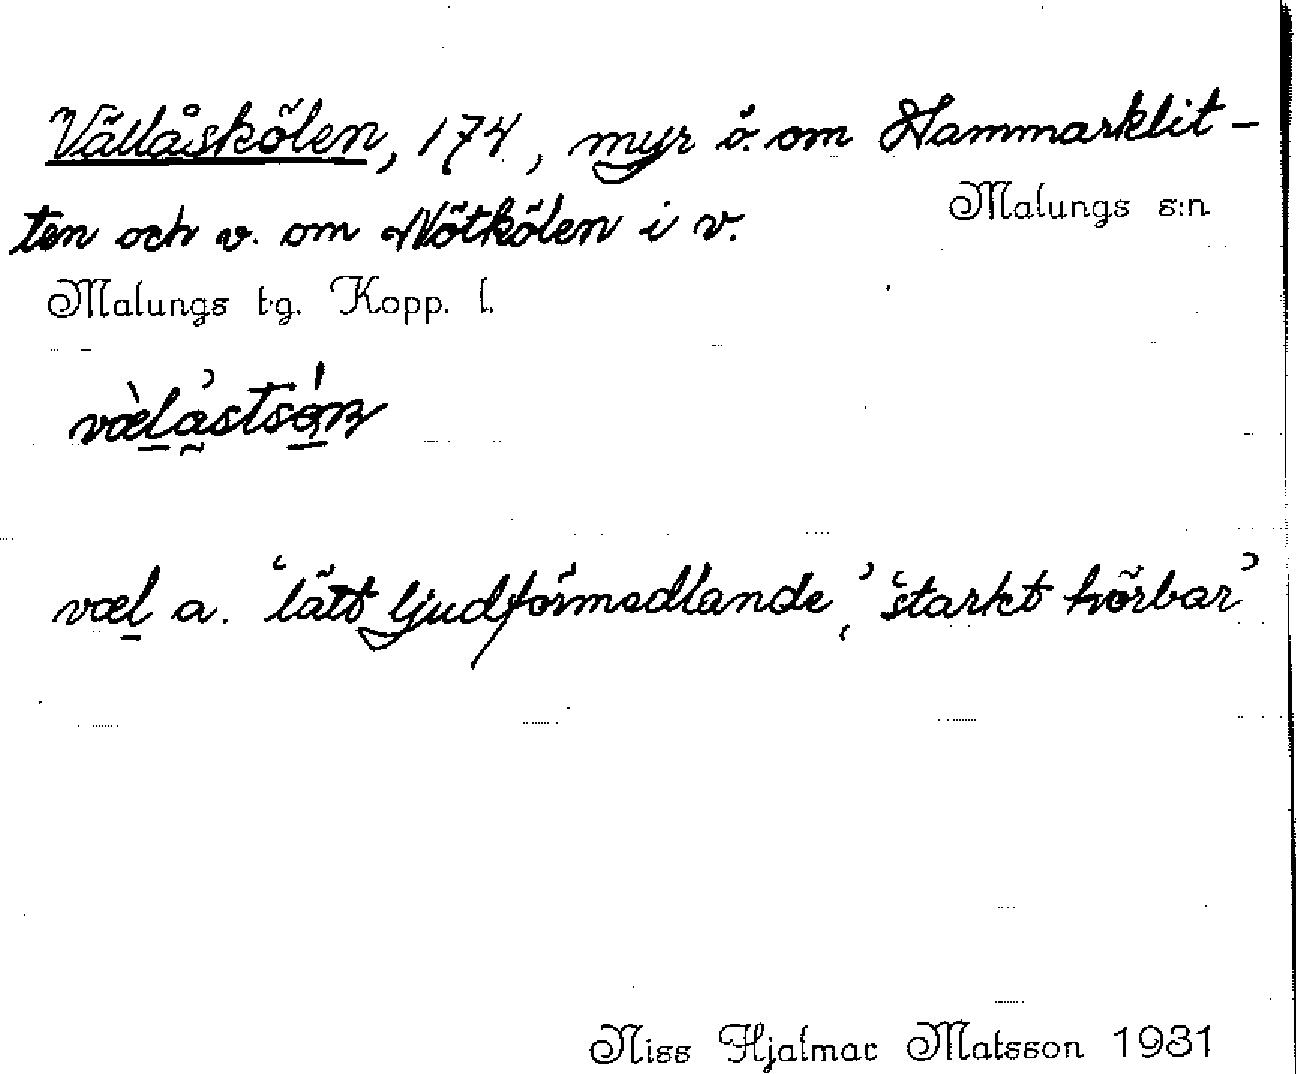 Vällåskölen, 174, myr ö. om Hammarklit-
Malungs s:n
ten och v. om Nötkölen i v.
Malungs tg. Kopp. l.
væl a. ‘lätt ljudförmedlande’, ‘starkt hörbar’
Niss Hjalmar Matsson 1931